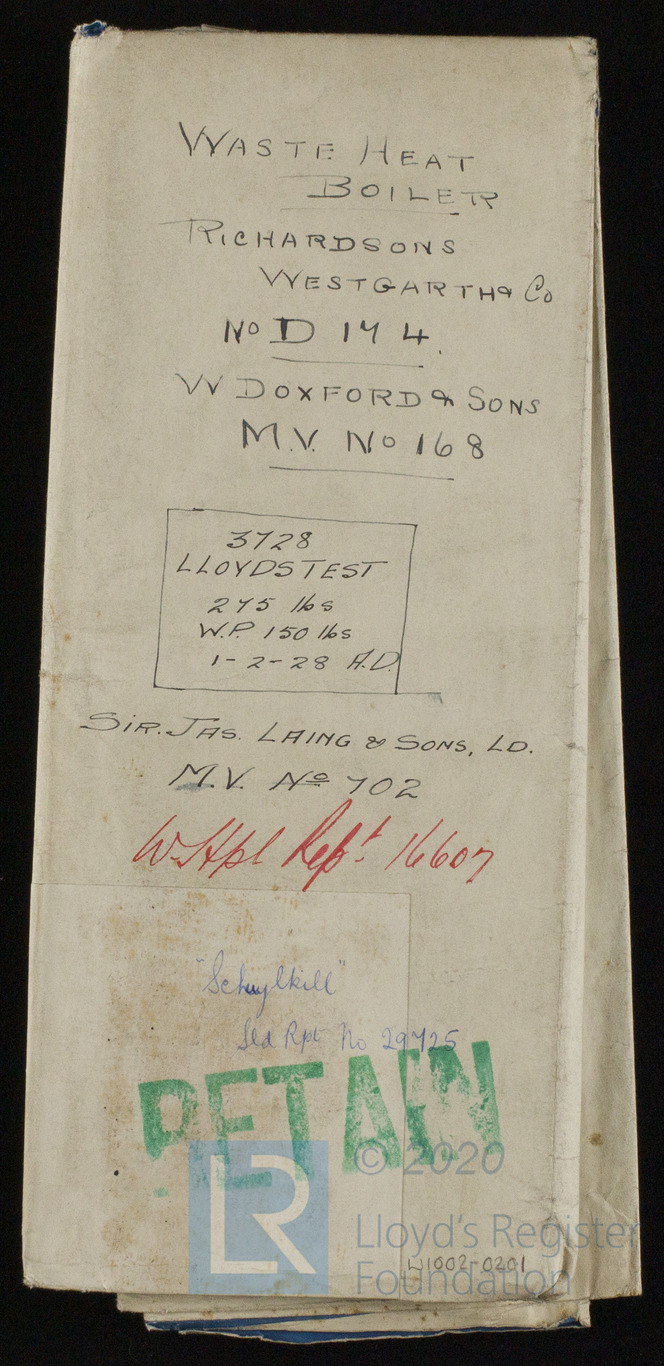 WASTE HEAT
BOILER
RICHARDSONS
WESTGARTH & Co
No D 174.
W DOXFORD & SONS
M.V. No 168
3728
LLOYDS TEST
275 lbs
W.P. 150 lbs
1-2-28 A.D.
SIR. JAS. LAING & SONS, LD.
M.V. No 702
W Hpl Rept 16607
"Schuylkill"
Sld Rpt No 29725
RETAIN
LR
© 2020
Lloyd's Register
Foundation
W1002-0201